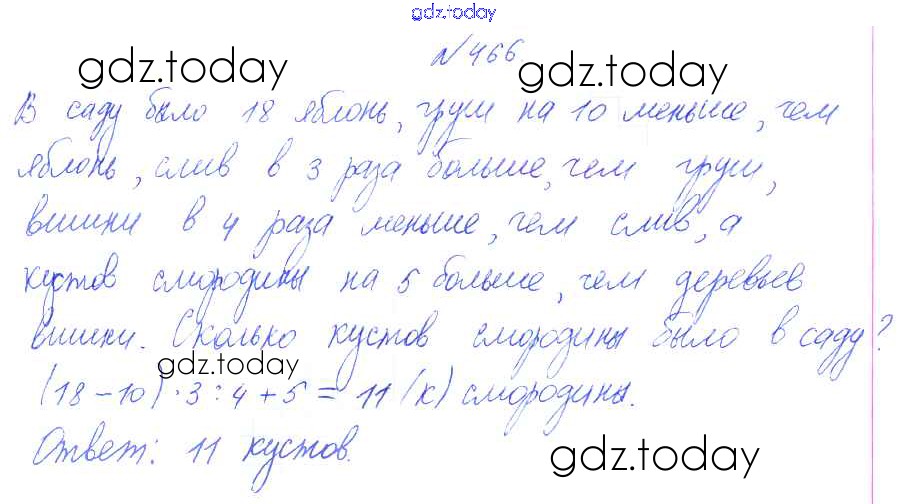 gdz.today
№466
gdz.today gdz.today
В саду было 18 яблонь, груш на 10 меньше, чем
яблонь, слив в 3 раза больше, чем груш,
вишни в 4 раза меньше, чем слив, а
кустов смородины на 5 больше, чем деревьев
вишни. Сколько кустов смородины было в саду?
gdz.today
(18-10)·3:4+5=11 (к) смородины.
Ответ: 11 кустов.
gdz.today